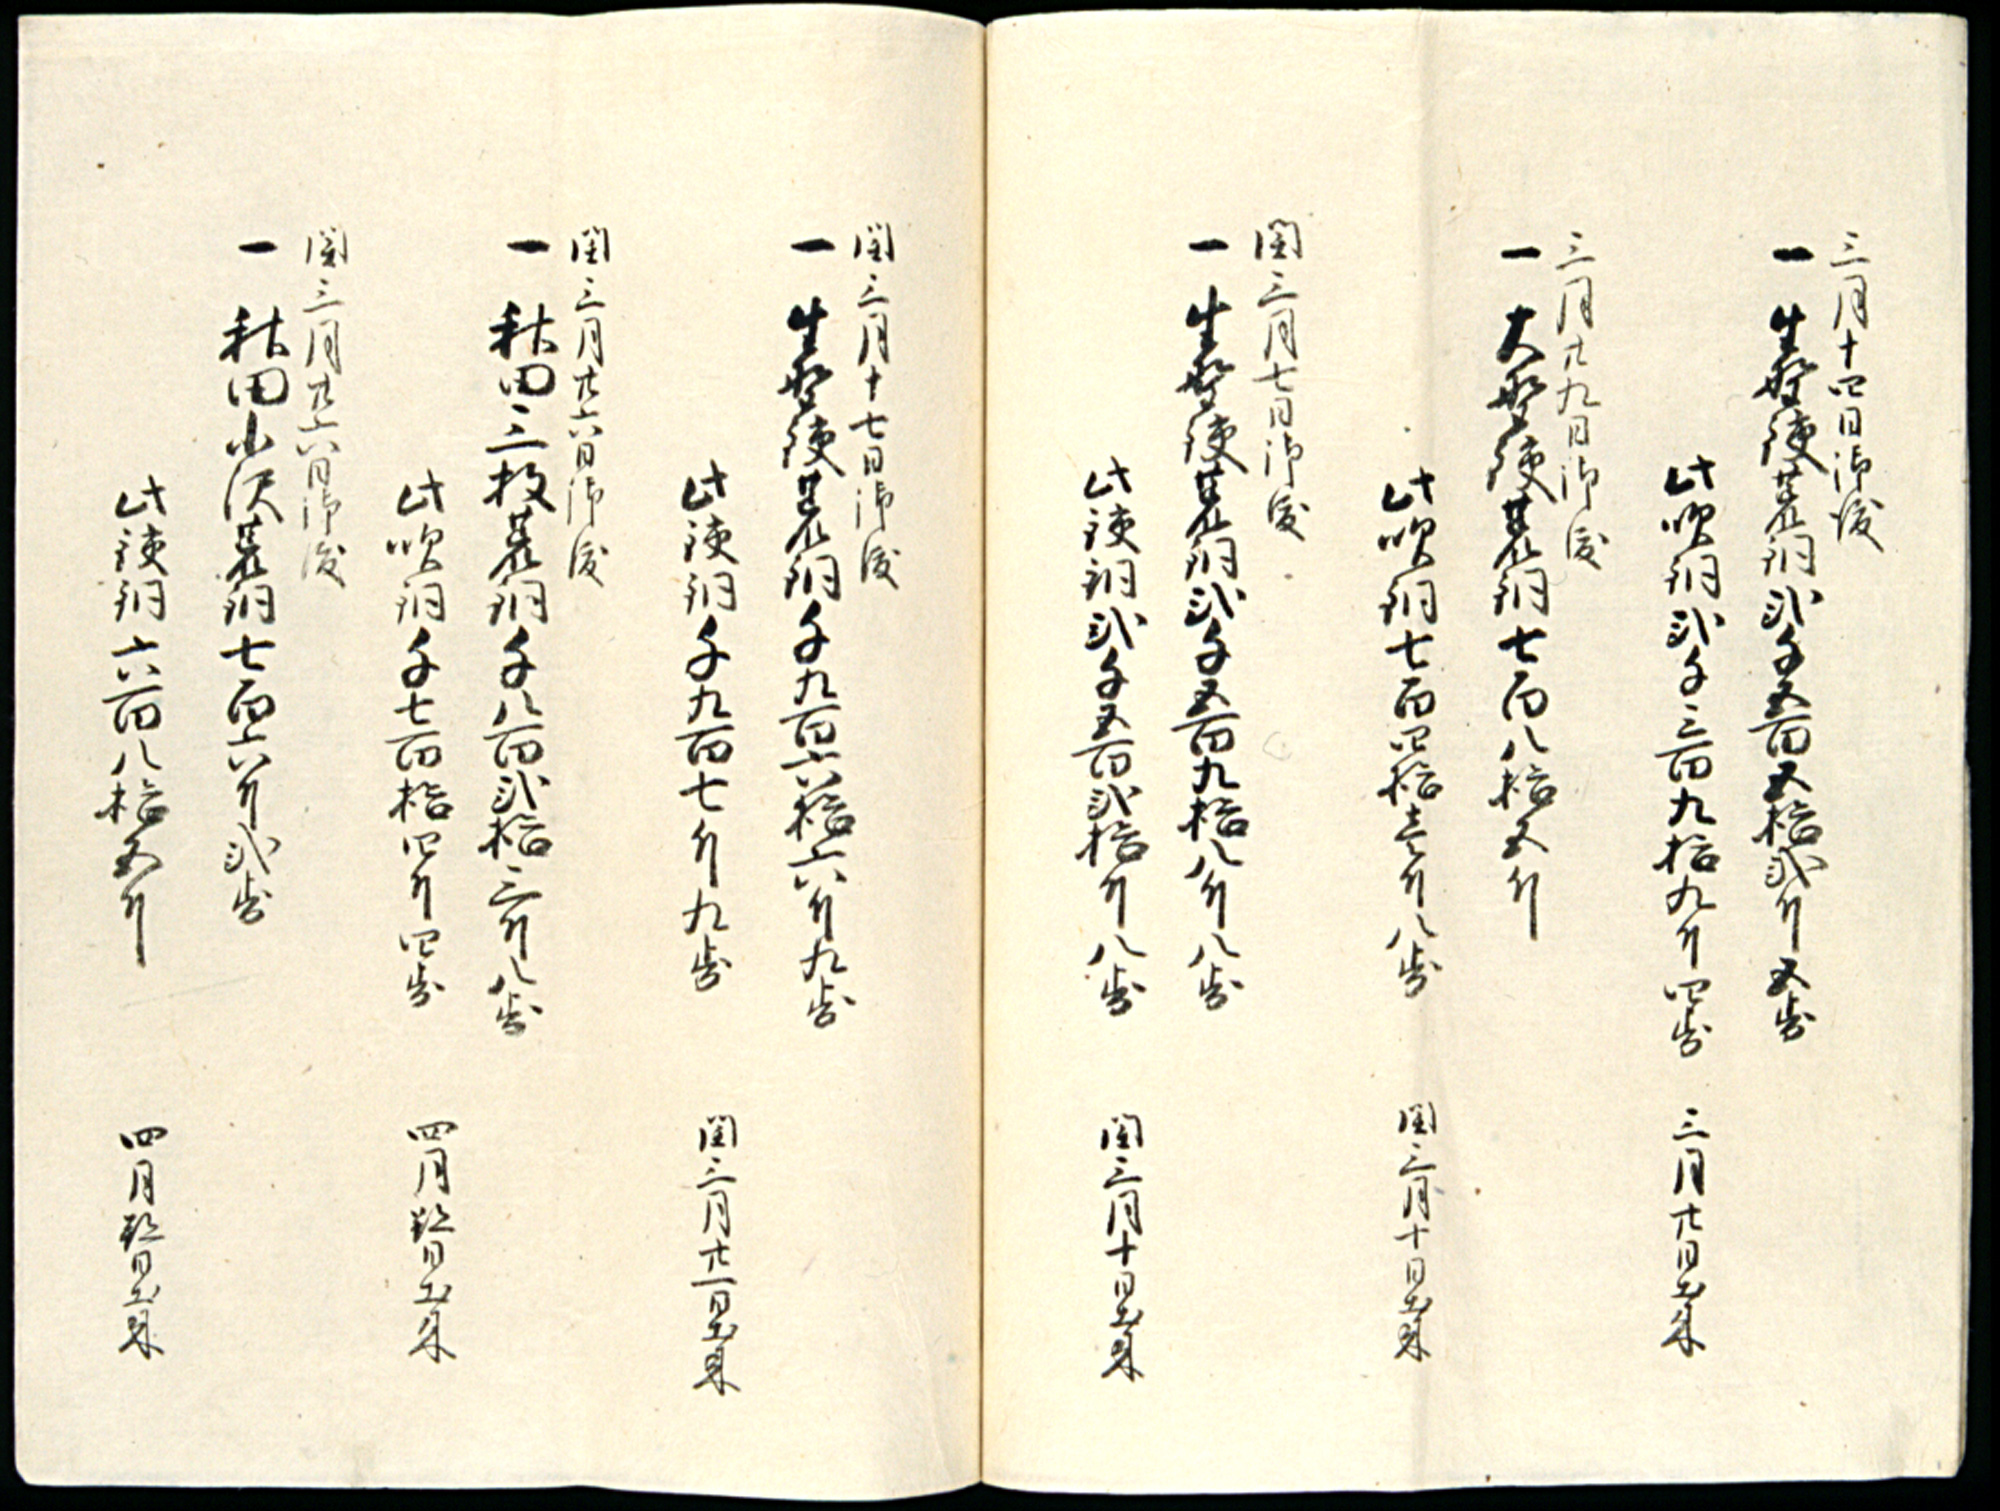 三月十四日御渡
一 生野鏈荒銅弐千五百五拾弐斤五歩
此吹銅弐千三百九拾九斤四歩 三月廿日出来
三月廿九日御渡
一 大野鏈荒銅七百八拾五斤
此吹銅七百四拾壱斤八歩 閏三月十日出来
閏三月七日御渡
一 生野鏈荒銅弐千五百九拾八斤八歩
此鏈銅弐千五百弐拾斤八歩 閏三月十日出来
閏三月十七日御渡
一 生野鏈荒銅千九百六拾六斤九歩
此鏈銅千九百七斤九歩 閏三月廿一日出来
閏三月廿六日御渡
一 秋田三枚荒銅千八百弐拾三斤八歩
此吹銅千七百拾四斤四歩 四月朔日出来
閏三月廿六日御渡
一 秋田小沢荒銅七百六斤弐歩
此鏈銅六百八拾五斤 四月朔日出来